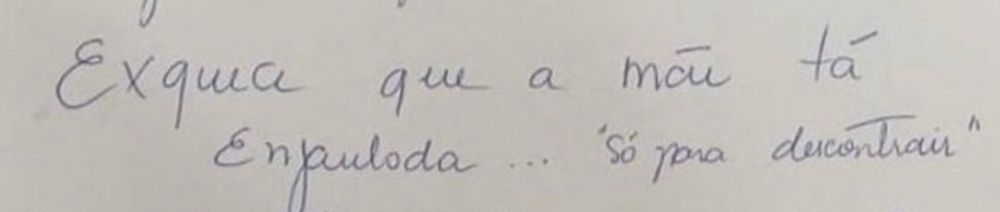 Exquca que a mãe tá
Enjaulada ... "só para descontrair"